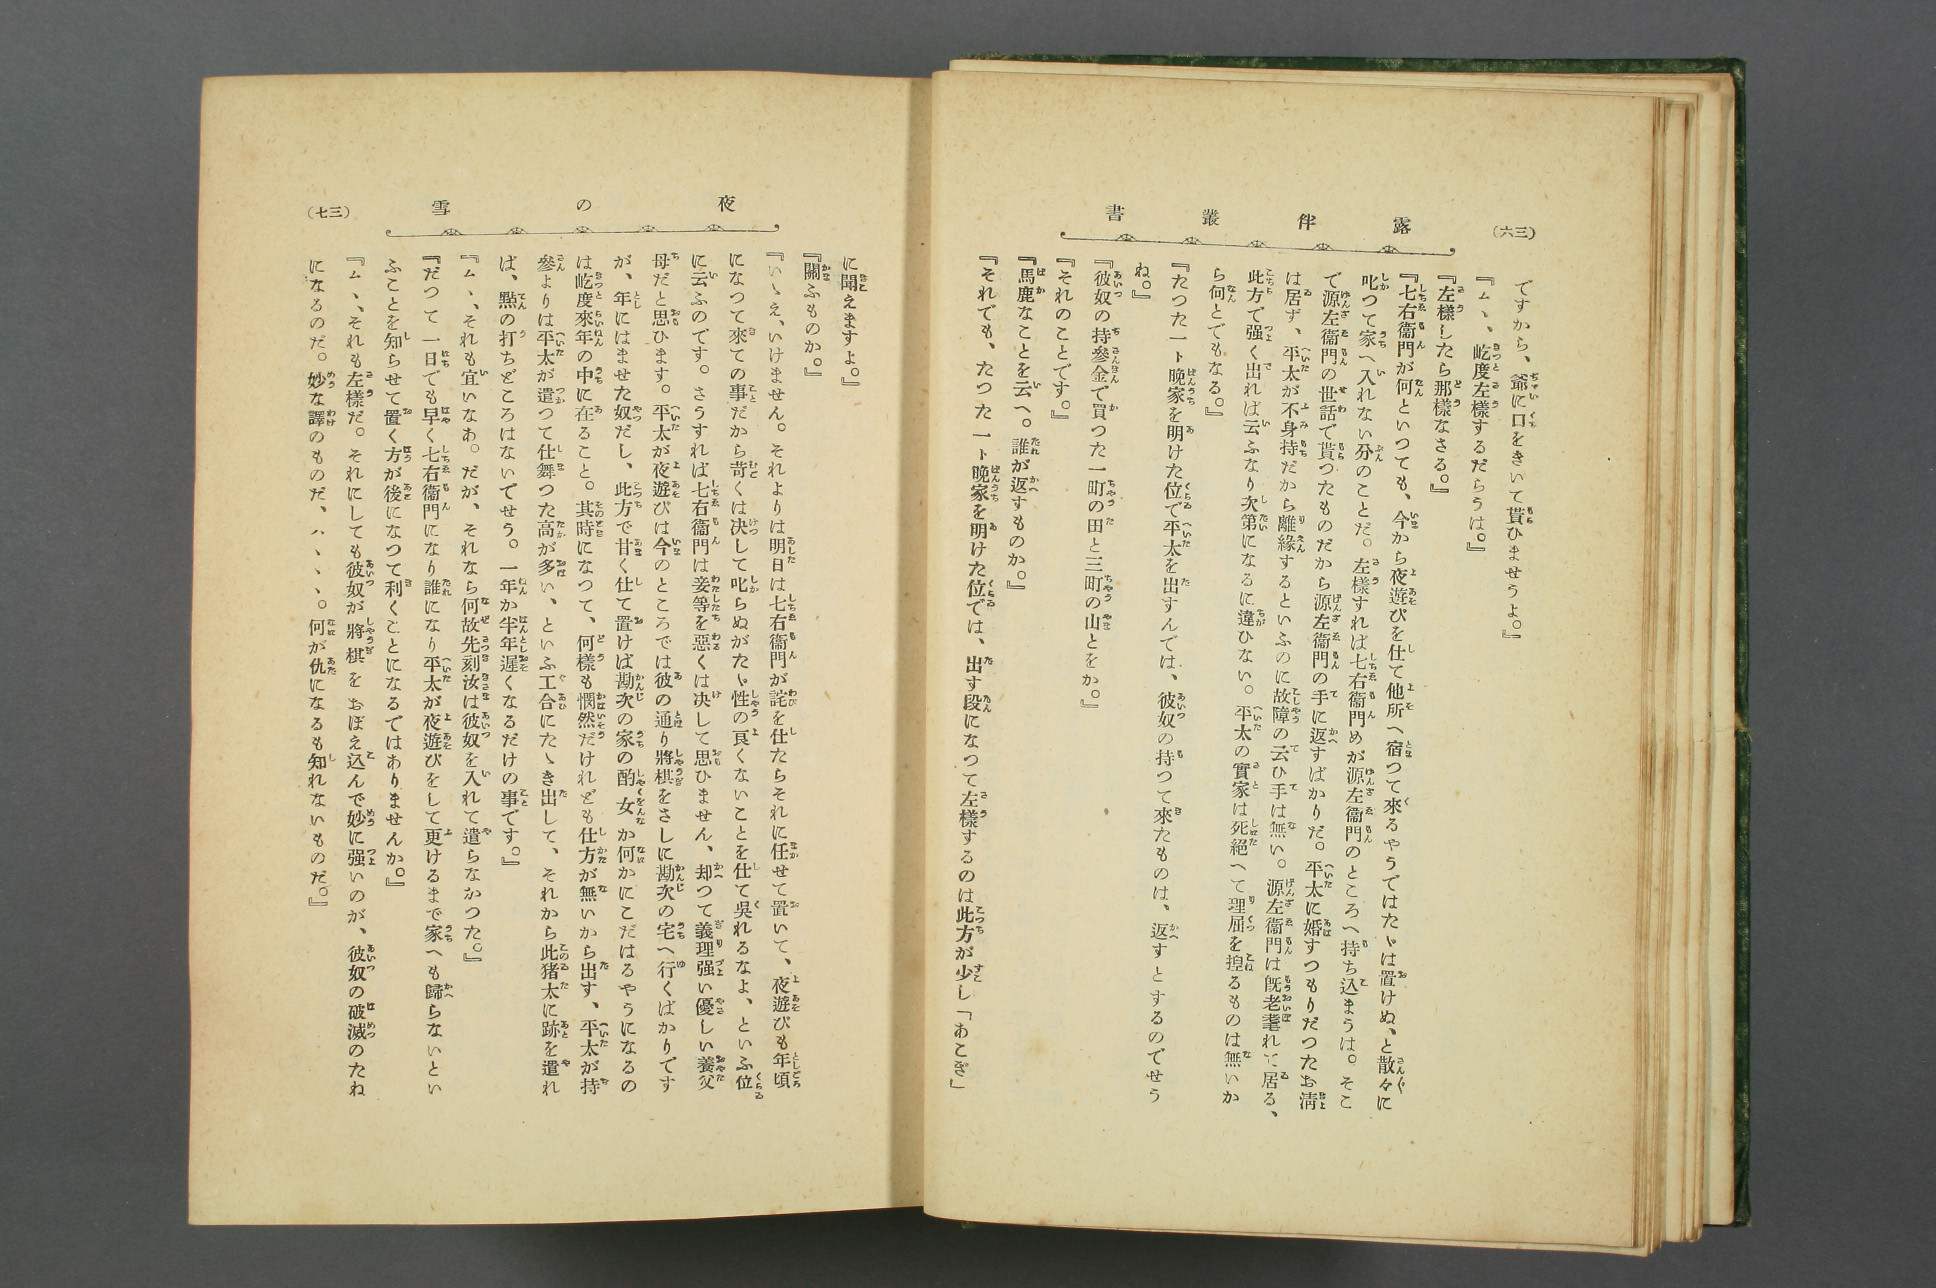 (三六)
露伴叢書
ですから、爺に口をきいて貰ひませうよ。』
『ム丶、屹度左様するだらうは。』
『左様したら那様なさる。』
『七右衞門が何といつても、今から夜遊びを仕て他所へ宿つて來るやうではたゞは置けぬ、と散々に
叱つて家へ入れない分のことだ。左様すれば七右衞門めが源左衞門のところへ持ち込まうは。そこ
で源左衞門の世話で貰つたものだから源左衞門の手に返すばかりだ。平太に婚すつもりだつたお淸
は居ず、平太が不身持だから離緣するといふのに故障の云ひ手は無い。源左衞門は既老耄れて居る、
此方で强く出れば云ふなり次第になるに違ひない。平太の實家は死絕へて理屈を揑るものは無いか
ら何とでもなる。』
『たつた一ト晚家を明けた位で平太を出すんでは、彼奴の持つて來たものは、返すとするのでせう
ね。』
『彼奴の持參金で買つた一町の田と三町の山とをか。』
『それのことです。』
『馬鹿なことを云へ。誰が返すものか。』
『それでも、たつた一ト晚家を明けた位では、出す段になつて左樣するのは此方が少し「あこぎ」
夜の雪
(三七)
に聞えますよ。』
『關ふものか。』
『いゝえ、いけません。それよりは明日は七右衞門が詫を仕たらそれに任せて置いて、夜遊びも年頃
になつて來ての事だから苛くは决して叱らぬがたゞ性の良くないことを仕て吳れるなよ、といふ位
に云ふのです。さうすれば七右衞門は妾等を惡くは决して思ひません、却つて義理强い優しい養父
母だと思ひます。平太が夜遊びは今のところでは彼の通り將棋をさしに勘次の宅へ行くばかりです
が、年にはませた奴だし、此方で甘く仕て置けば勘次の家の酌女か何かにこだはるやうになるの
は屹度來年の中に在ること。其時になつて、何樣も憫然だけれども仕方が無いから出す、平太が持
參よりは平太が遣つて仕舞つた高が多い、といふ工合にたゝき出して、それから此猪太に跡を遣れ
ば、點の打ちどころはないでせう。一年か半年遲くなるだけの事です。』
『ム丶、それも宜いなあ。だが、それなら何故先刻汝は彼奴を入れて遣らなかつた。』
『だつて一日でも早く七右衞門になり誰になり平太が夜遊びをして更けるまで家へも歸らないとい
ふことを知らせて置く方が後になつて利くことになるではありませんか。』
『ム丶、それも左樣だ。それにしても彼奴が將棋をおぼえ込んで妙に强いのが、彼奴の破滅のたね
になるのだ。妙な譯のものだ、ハ丶丶丶。何が仇になるも知れないものだ。』